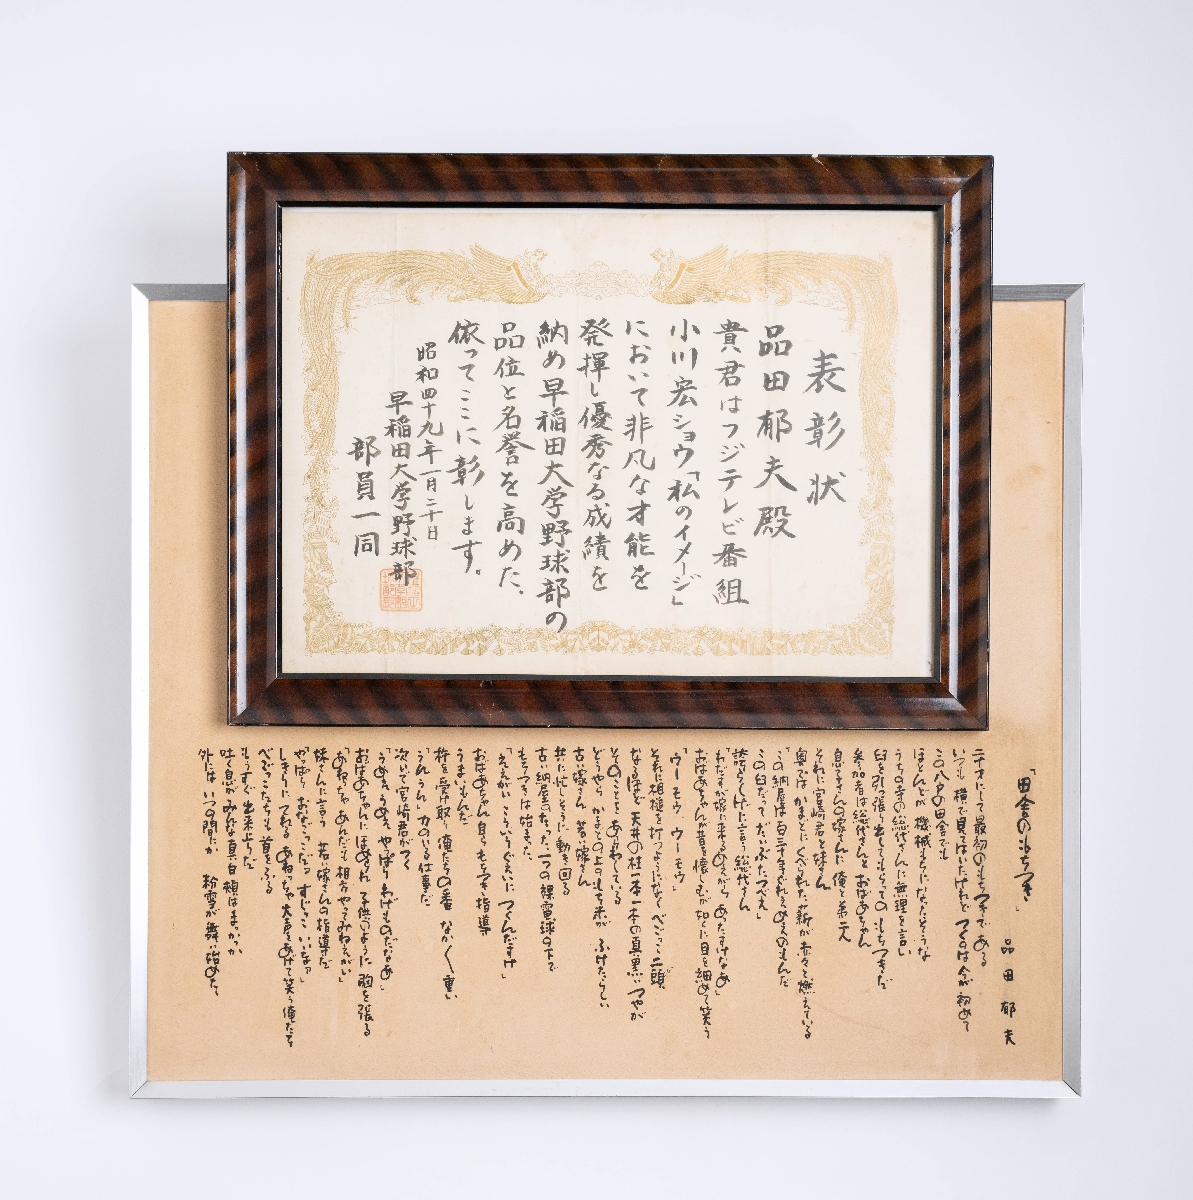 表彰状
品田郁夫殿
貴君はフジテレビ番組
小川宏ショウ「私のイメージ」
において非凡な才能を
発揮し優秀なる成績を
納め早稲田大学野球部の
品位と名誉を高めた、
依ってここに彰します。
昭和四十九年一月二十日
早稲田大学野球部
部員一同
「田舎のもちつき」
品田郁夫
二十才にして最初のもちつきである
いつも横で見てはいたけれどつくのは今が初めて
この八戸の田舎でも
ほとんどが機械もちになったそうな
うちの寺の総代さんに無理を言い
臼を引っ張り出してもらってのもちつきだ
参加者は総代さんとおばあちゃん
息子さんの嫁さんに俺と弟二人
それに宮崎君と妹さん
奥ではかまどにくべられた薪が赤々と燃えている
「この納屋は百三十年ぐれえめえのもんだ
この臼だってだいぶたつべえ」
誇らしげに言う総代さん
「わだすが嫁に来るめえがらあったすけなあ」
おばあちゃんが昔を懐しむが如くに目を細めて笑う
「ウーモウ、ウーモウ」
それに相槌を打つようになくべごっこ二頭
なるほど天井の柱一本一本の真黒いつやが
そのことをあらわしている
どうやらかまどの上のもち米がふけたらしい
古い嫁さん若い嫁さん
共に忙しそうに動き回る
古い納屋のたった一つの裸電球の下で
もちつきは始まった
「ええがいこういうぐええにつくんだすけ」
おばあちゃん自らもちつき指導
うまいもんだ
杵を受け取り俺たちの番なかなか重い
「うんうん」力のいる仕事だ
次いで宮崎君がつく
「うめえうめえやっぱりわげものだなあ」
おばあちゃんにほめられ子供のように胸を張る
「あねちゃあんだも相方やってみねえがい」
妹さんに言う若い嫁さんの指導さだ
「やっぱりおなごっこだなすじっこいいなっ」
しきりにてれるあねっちゃ大声をあげて笑う俺たち
べごっこたちも首をふる
もうすぐ出来上りだ
吐く息がみんな真白頬はまっかっか
外にはいつの間にか粉雪が舞い始めた